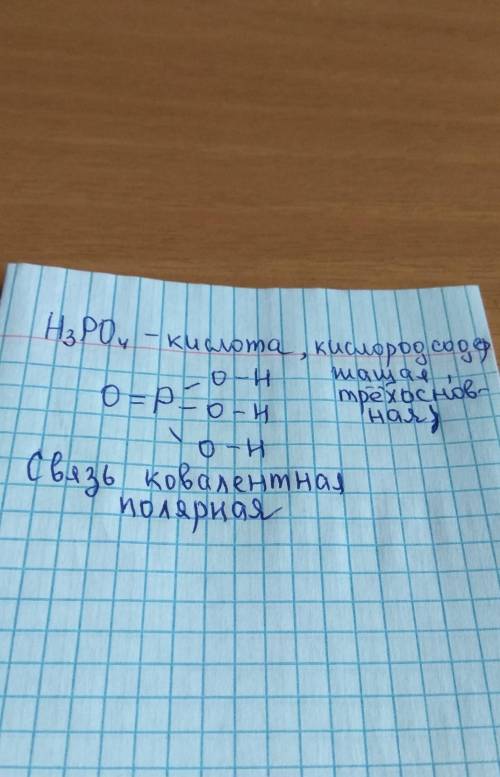 H₃PO₄ – кислота, кислородсодер
жащая,
трёхоснов-
ная)
O – H
O = P = O – H
O – H
Связь ковалентная
полярная